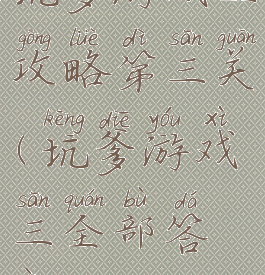 gōng lüè dì sān guān
攻略第三关
kēng diē yóu xì
(坑爹游戏
sān quán bù dá
三全部答